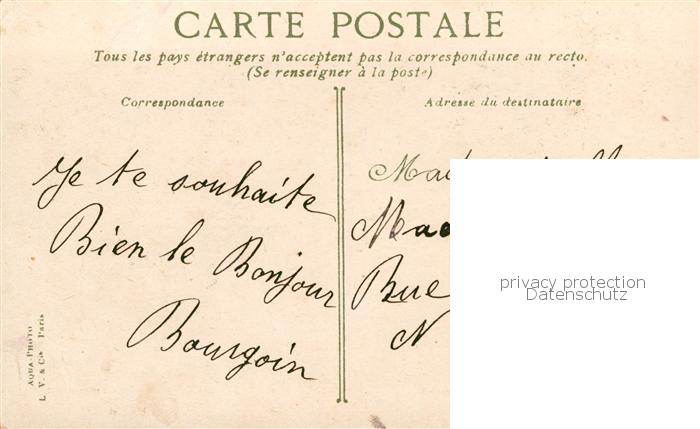 CARTE POSTALE
Tous les pays étrangers n'acceptent pas la correspondance au recto.
(Se renseigner à la poste)
Correspondance
Je te souhaite
Bien le Bonjour
Bourgoin
AQUA-PHOTO
L. V. & Cie Paris
Adresse du destinataire
Rue
N
privacy protection
Datenschutz